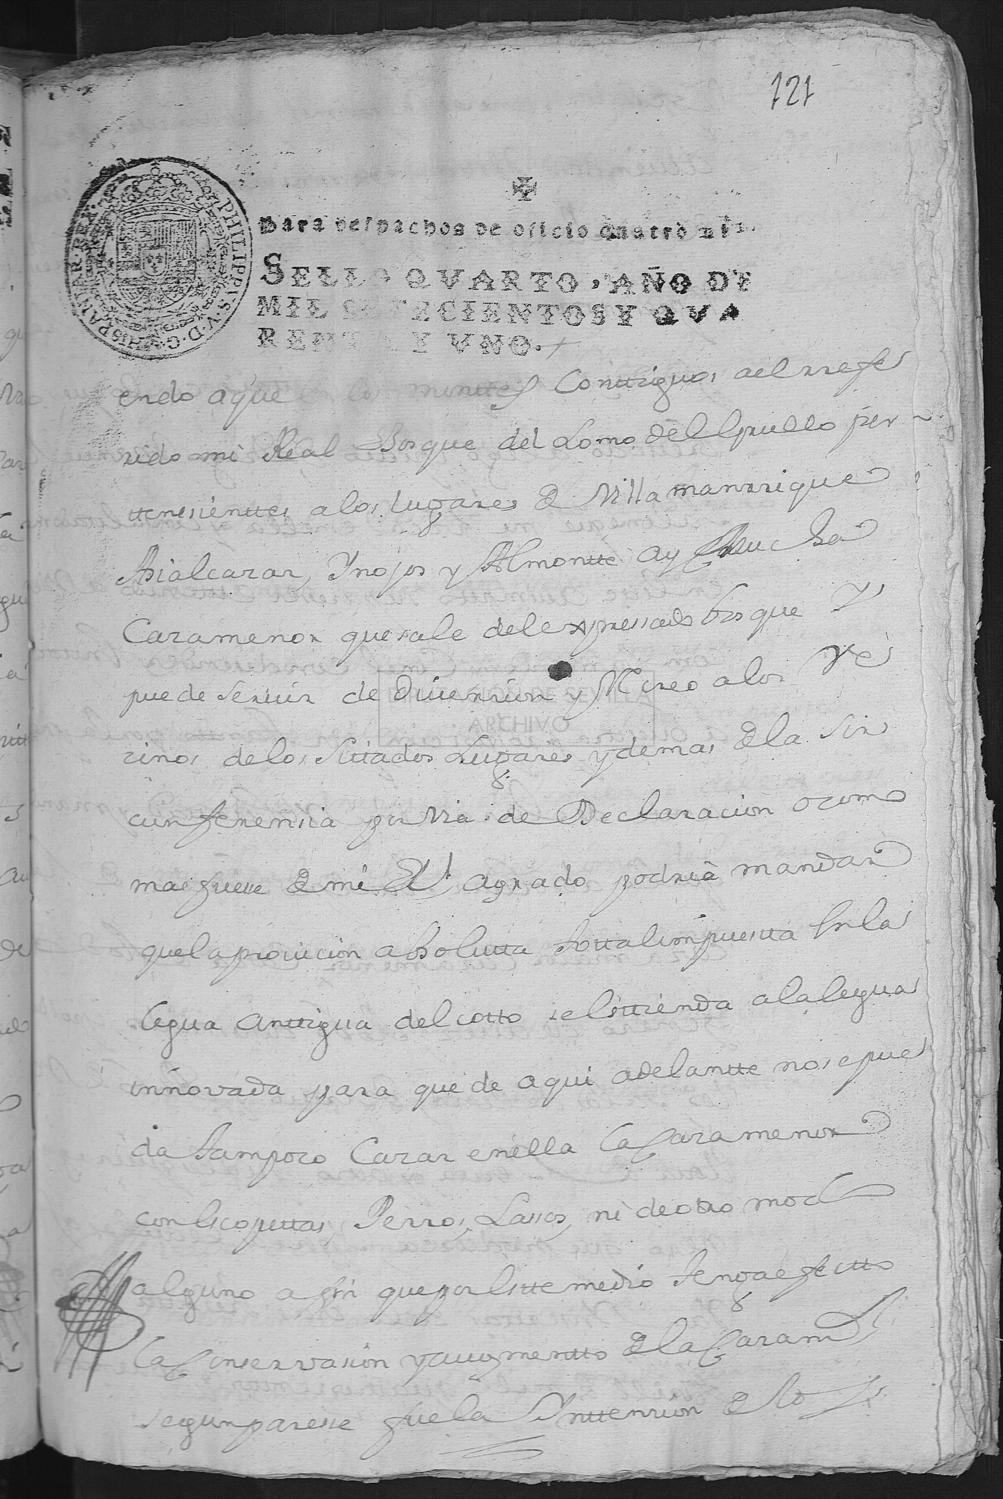 121
PHILIPPUS V D G HISPANIAR REX
Para despachos de oficio quatro mrs.
SELLO QVARTO, AÑO DE
MIL SETECIENTOS Y QVA
RENTA Y VNO.
endo a que los monttes Conttiguos ael rrefe
rido mi Real Bosque del Lomo del Grullo per
ttenesienttes a los lugares de Villamanrrique
Asialcazar, Ynojos y Almontte ay mucha
Caza menor que sale del expressado bosque Y
puede seruir de diuersion y rrecreo a los Ve
zinos de los Sittados Lugares y demas de la Sir
cunferensia por via de Declaracion o como
mas fuese de mi Rl agrado podria mandar
que la proiuicion absolutta Conttal impuestta En la
legua anttigua del cotto se esttienda a la legua
innovada para que de aqui adelantte no se pue
da tampoco Cazar en ella la Caza menor
con Escopettas, Perros, Lasos, ni de otro modo
alguno a fin que por Estte medio tenga efectto
la Conservasion y augmentto de la Caza
segun parese fue la Inttension de
DIPUTACION DE SEVILLA
ARCHIVO